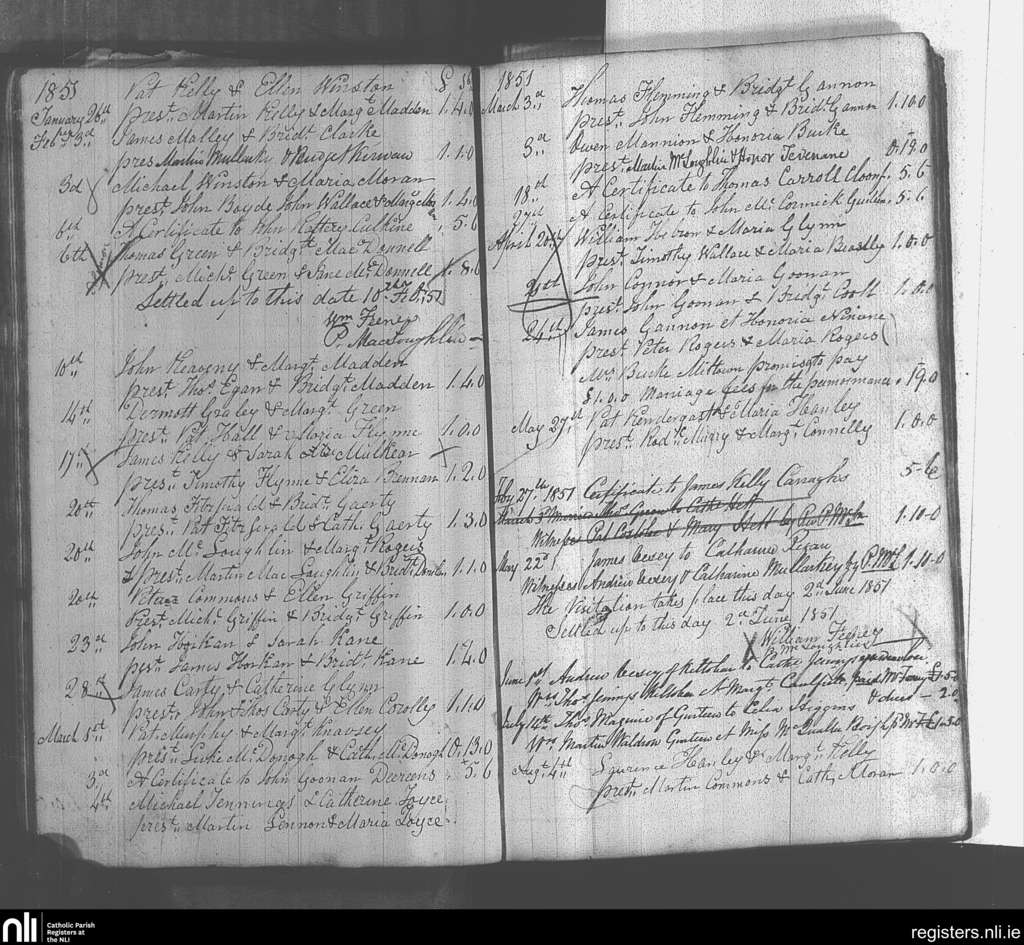 1851 Pat Kelly & Ellen Winston £ S D
January 28th prest. Martin Kelly & Margt. Madden 1.4.0
Feby. 3d James Malley & Bridt. Clarke
pres. Martin Mullarky & Bridget Kerwan 1.1.0
3d Michael Winston & Maria Moran
prest. John Boyde John Wallace & Margt. 1.4.0
6th A Certificate to John Rattery Culkine 5.6
6th Thomas Green & Bridgt. Mac Donnell
prest. Michl. Green & Jane Mc.Donnell 1.8.0
Settled up to this date 10th Feb. 51
Wm Feeney
P. MacLoughlin
10th John Keaveny & Margt. Madden
prest. Thos. Egan & Bridgt. Madden 1.4.0
14th Dermott Graley & Margt. Green
prest. Pat. Hall & Maria Flynne 1.0.0
17th James Kelly & Sarah Mulkear
prest. Timothy Flynne & Eliza Brennan 1.2.0
20th Thomas Fitzgerald & Bridt. Gaerty
prest. Pat Fitzgerald & Cath. Gaerty 1.3.0
20th John Mc.Loughlin & Margt. Rogers
prest. Martin Mac Loughlin & Bridt. 1.1.0
20th Peter Commons & Ellen Griffin
Prest. Michl. Griffin & Bridgt. Griffin 1.0.0
23d John Horkan & Sarah Kane
prest. James Horkan & Bridt. Kane 1.4.0
28th James Carty & Catherine Glynn
prest. John & Thos Carty & Ellen Corolly 1.1.0
March 1st Pat. Murphy & Margt. Kneavsey
prest. Luke Mc.Donogh & Cath. Mc.Donogh 0.13.0
3d A Certificate to John Goonan Dereens 5.6
4th Michael Jennings & Catherine Joyce
prest. Martin Lennon & Maria Joyce
1851
March 3d Thomas Flemming & Bridgt Gannon
prest. John Flemming & Bridt Gannn 1.10.0
3d Owen Mannion & Honoria Burke
prest. Martin Mc.Loughlin & Honor 0.19.0
18th A Certificate to Thomas Carroll 5.6
A Certificate to John Mc.Cormick 5.6
April William & Maria Glynn
prest. Timothy Wallace & Maria Beasly 1.0.0
24th John Connor & Maria Goonan
prest. John Goonan & Bridgt. 1.0.0
24th James Gannon et Honoria
prest. Peter Rogers & Maria Rogers
Mrs Burke Miltown promises to pay
£1.0.0 Marriage fees for the 19.0
May 27th Pat Prendergast & Maria Hanley
prest. & Margt. Connelly 1.0.0
Feby. 27th 1851 Certificate to James Kelly Carraghs 5-6
March
Witnesses Pat & Mary 1-10-0
May 22d James & Catharine Regan
Witnesses Andrew & Catharine Mullarkey by P. McL 1-10-0
The Visitation takes place this day 2d June 1851
Settled up to this day 2d June 1851
William Feeney
P. McLoughlin
June 1st Andrew of Kiltolan to Cathe
Ws. Thos Jennings Kiltolan & Margt.
July 14th Thos Maguire of Gurteen to Celia Higgins
Ws. Martin Waldron Gurteen & Miss
Augt. 4th Laurence Hanley & Margt. Kelly
prest. Martin Commons & Cath. Moran 1.0.0
nli Catholic Parish
Registers at
the NLI
registers.nli.ie